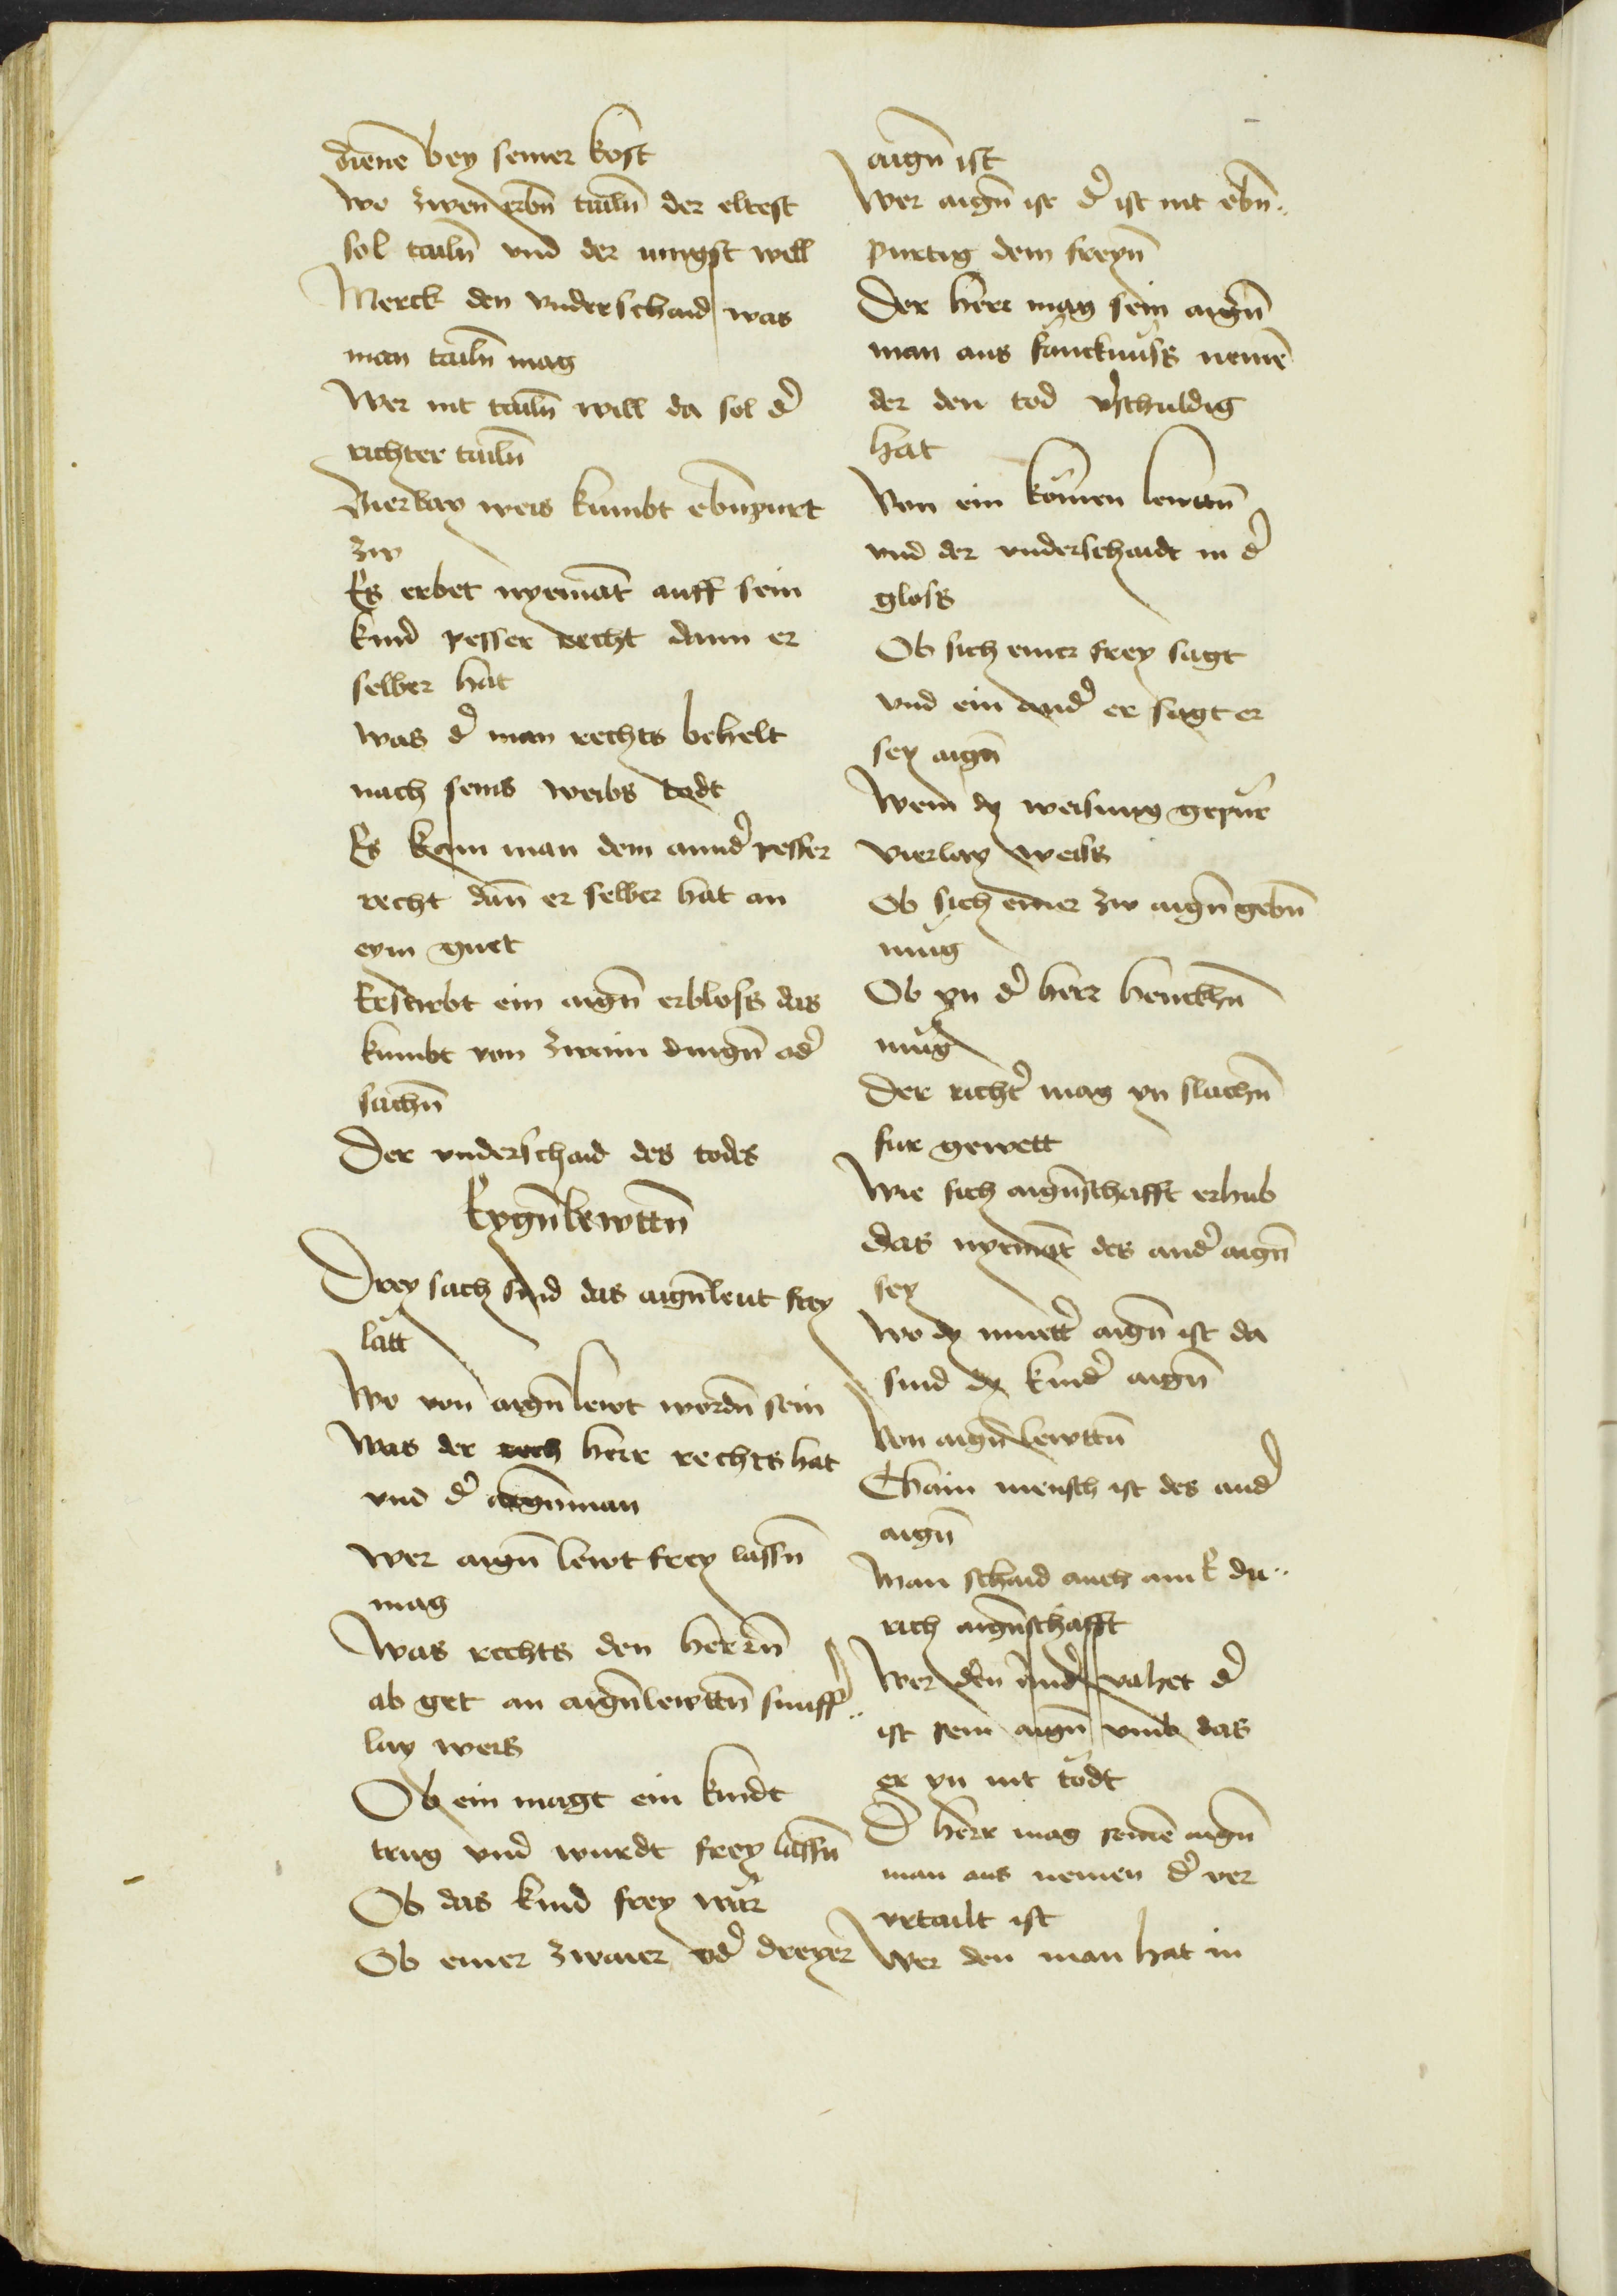 diene bey seiner kost
wo zwen erbn̄ tailn̄ der eltest
sol tailn̄ vnd der iungst well
Merck den vnderschaid was
man tailn̄ mag
Wer nit tailn̄ will da sol d̓
richter tailn̄
Vierlay weis kumbt ebn̄purt
zw
Es erbet nyemāt auff sein
kind pesser recht dann er
selber hat
was d̓ man rechts behelt
nach seins weibs todt
Es kann man dem annd̓ pesser
recht dan̄ er selber hat an
eym guet
Erstirbt ein aign̄ erbloss das
kumbt von zwain dingn̄ od̓
sachn̄
Der vnderschaid des todes
Eygn̄lewttn̄
Drey sach sind das aign̄leut frey
lätt
Wo von aign̄ lewt wordn̄ sein
Was der herr rechts hat
vnd d̓ aygn̄man
Wer aign̄ lewt frey lassn̄
mag
Was rechts den herrn̄
ab get an aign̄lewttn̄ finff
lay weis
Ob ein magt ein kindt
trug vnd wurdt frey lassn̄
Ob das kind frey wär
Ob einer zwaier od̓ dreyer
aign̄ ist
Wer aign̄ ist d̓ ist nit ebn̄
purtig dem freyn̄
Der herr mag sein aign̄
man aus fancknuss nemē
der den tod v̓schuldig
hat
Von ein komen lewttn̄
vnd der vnderschaidt in d̓
gloss
Ob sich einer frey sagt
vnd ein and̓ er sagt er
sey aign̄
Wem dy weisung gepür
vierlay weiss
Ob sich einer zw aign̄ gebn̄
müg
Ob yn d̓ herr henckhn̄
müg
Der richt̓ mag yn slachn̄
fur gewett
Wie sich aign̄schafft erhub
das nyemāt des and̓ aign̄
sey
Wo dy muett̓ aign̄ ist da
sind dy kind̓ aign̄
Von aign̄ lewttn̄
Chain mensch ist des and̓
aign̄
Man schaid auch am du
rich aign̄schafft
Wer den and̓ vahet d̓
ist sein aign̄ vmb das
er yn nit tödt
D̓ herr mag seinē aign̄
man aus nemen d̓ ver
vrtailt ist
Wer den man hat in